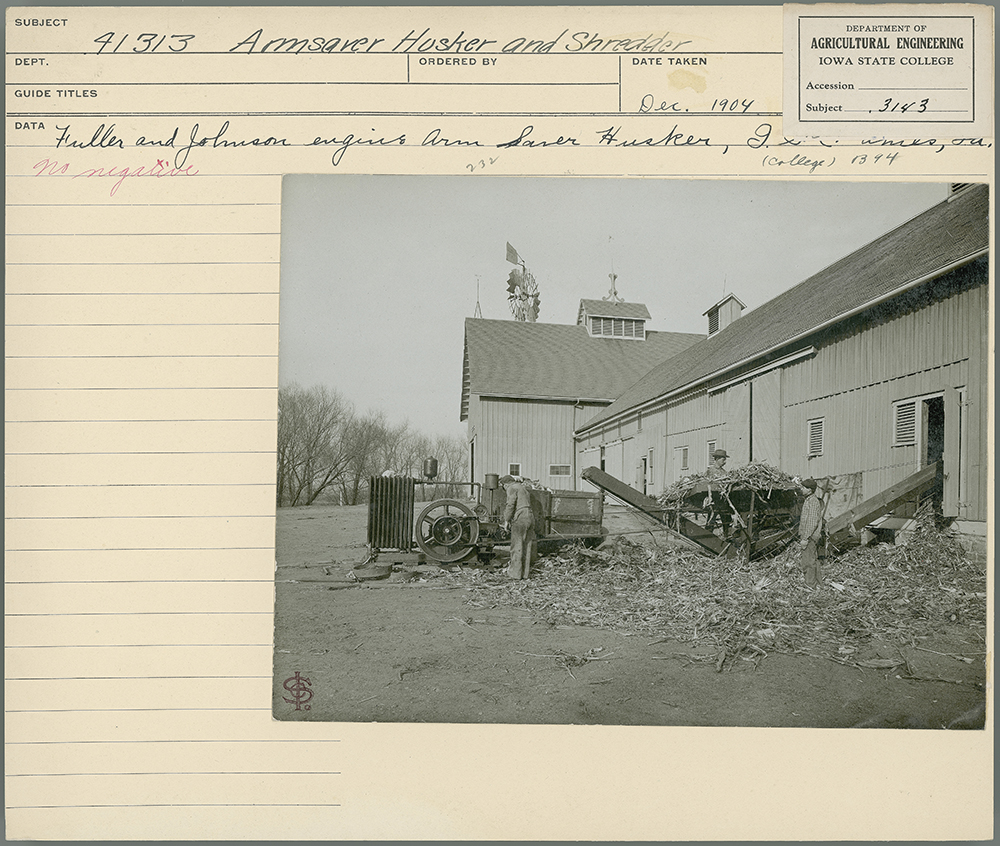 SUBJECT
41313 Armsaver Husker and Shredder
DEPT.
ORDERED BY
DATE TAKEN
Dec. 1904
GUIDE TITLES
DEPARTMENT OF
AGRICULTURAL ENGINEERING
IOWA STATE COLLEGE
Accession
Subject 3143
DATA Fuller and Johnson engine Arm Saver Husker, Ames, Ia.
No negative
232
(College) 1394